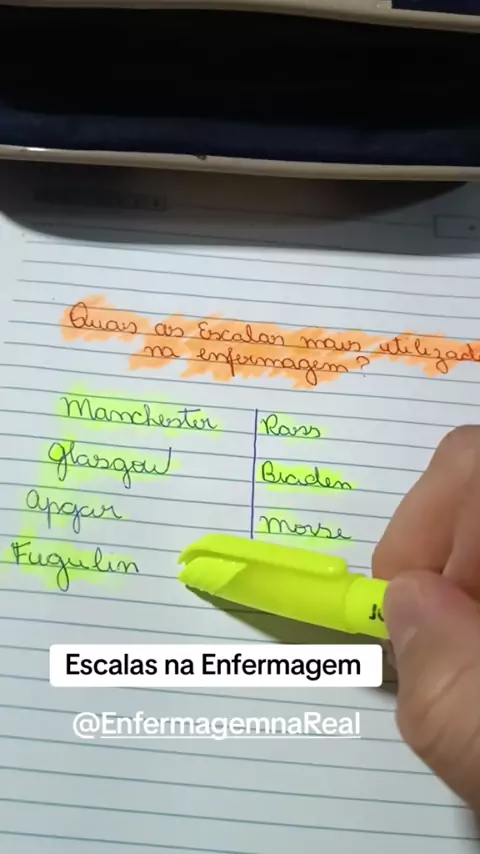 Quais as Escalas mais utilizad
na enfermagem?
Manchester
Glasgow
Apgar
Fugulin
Rass
Braden
Morse
Escalas na Enfermagem
@EnfermagemnaReal